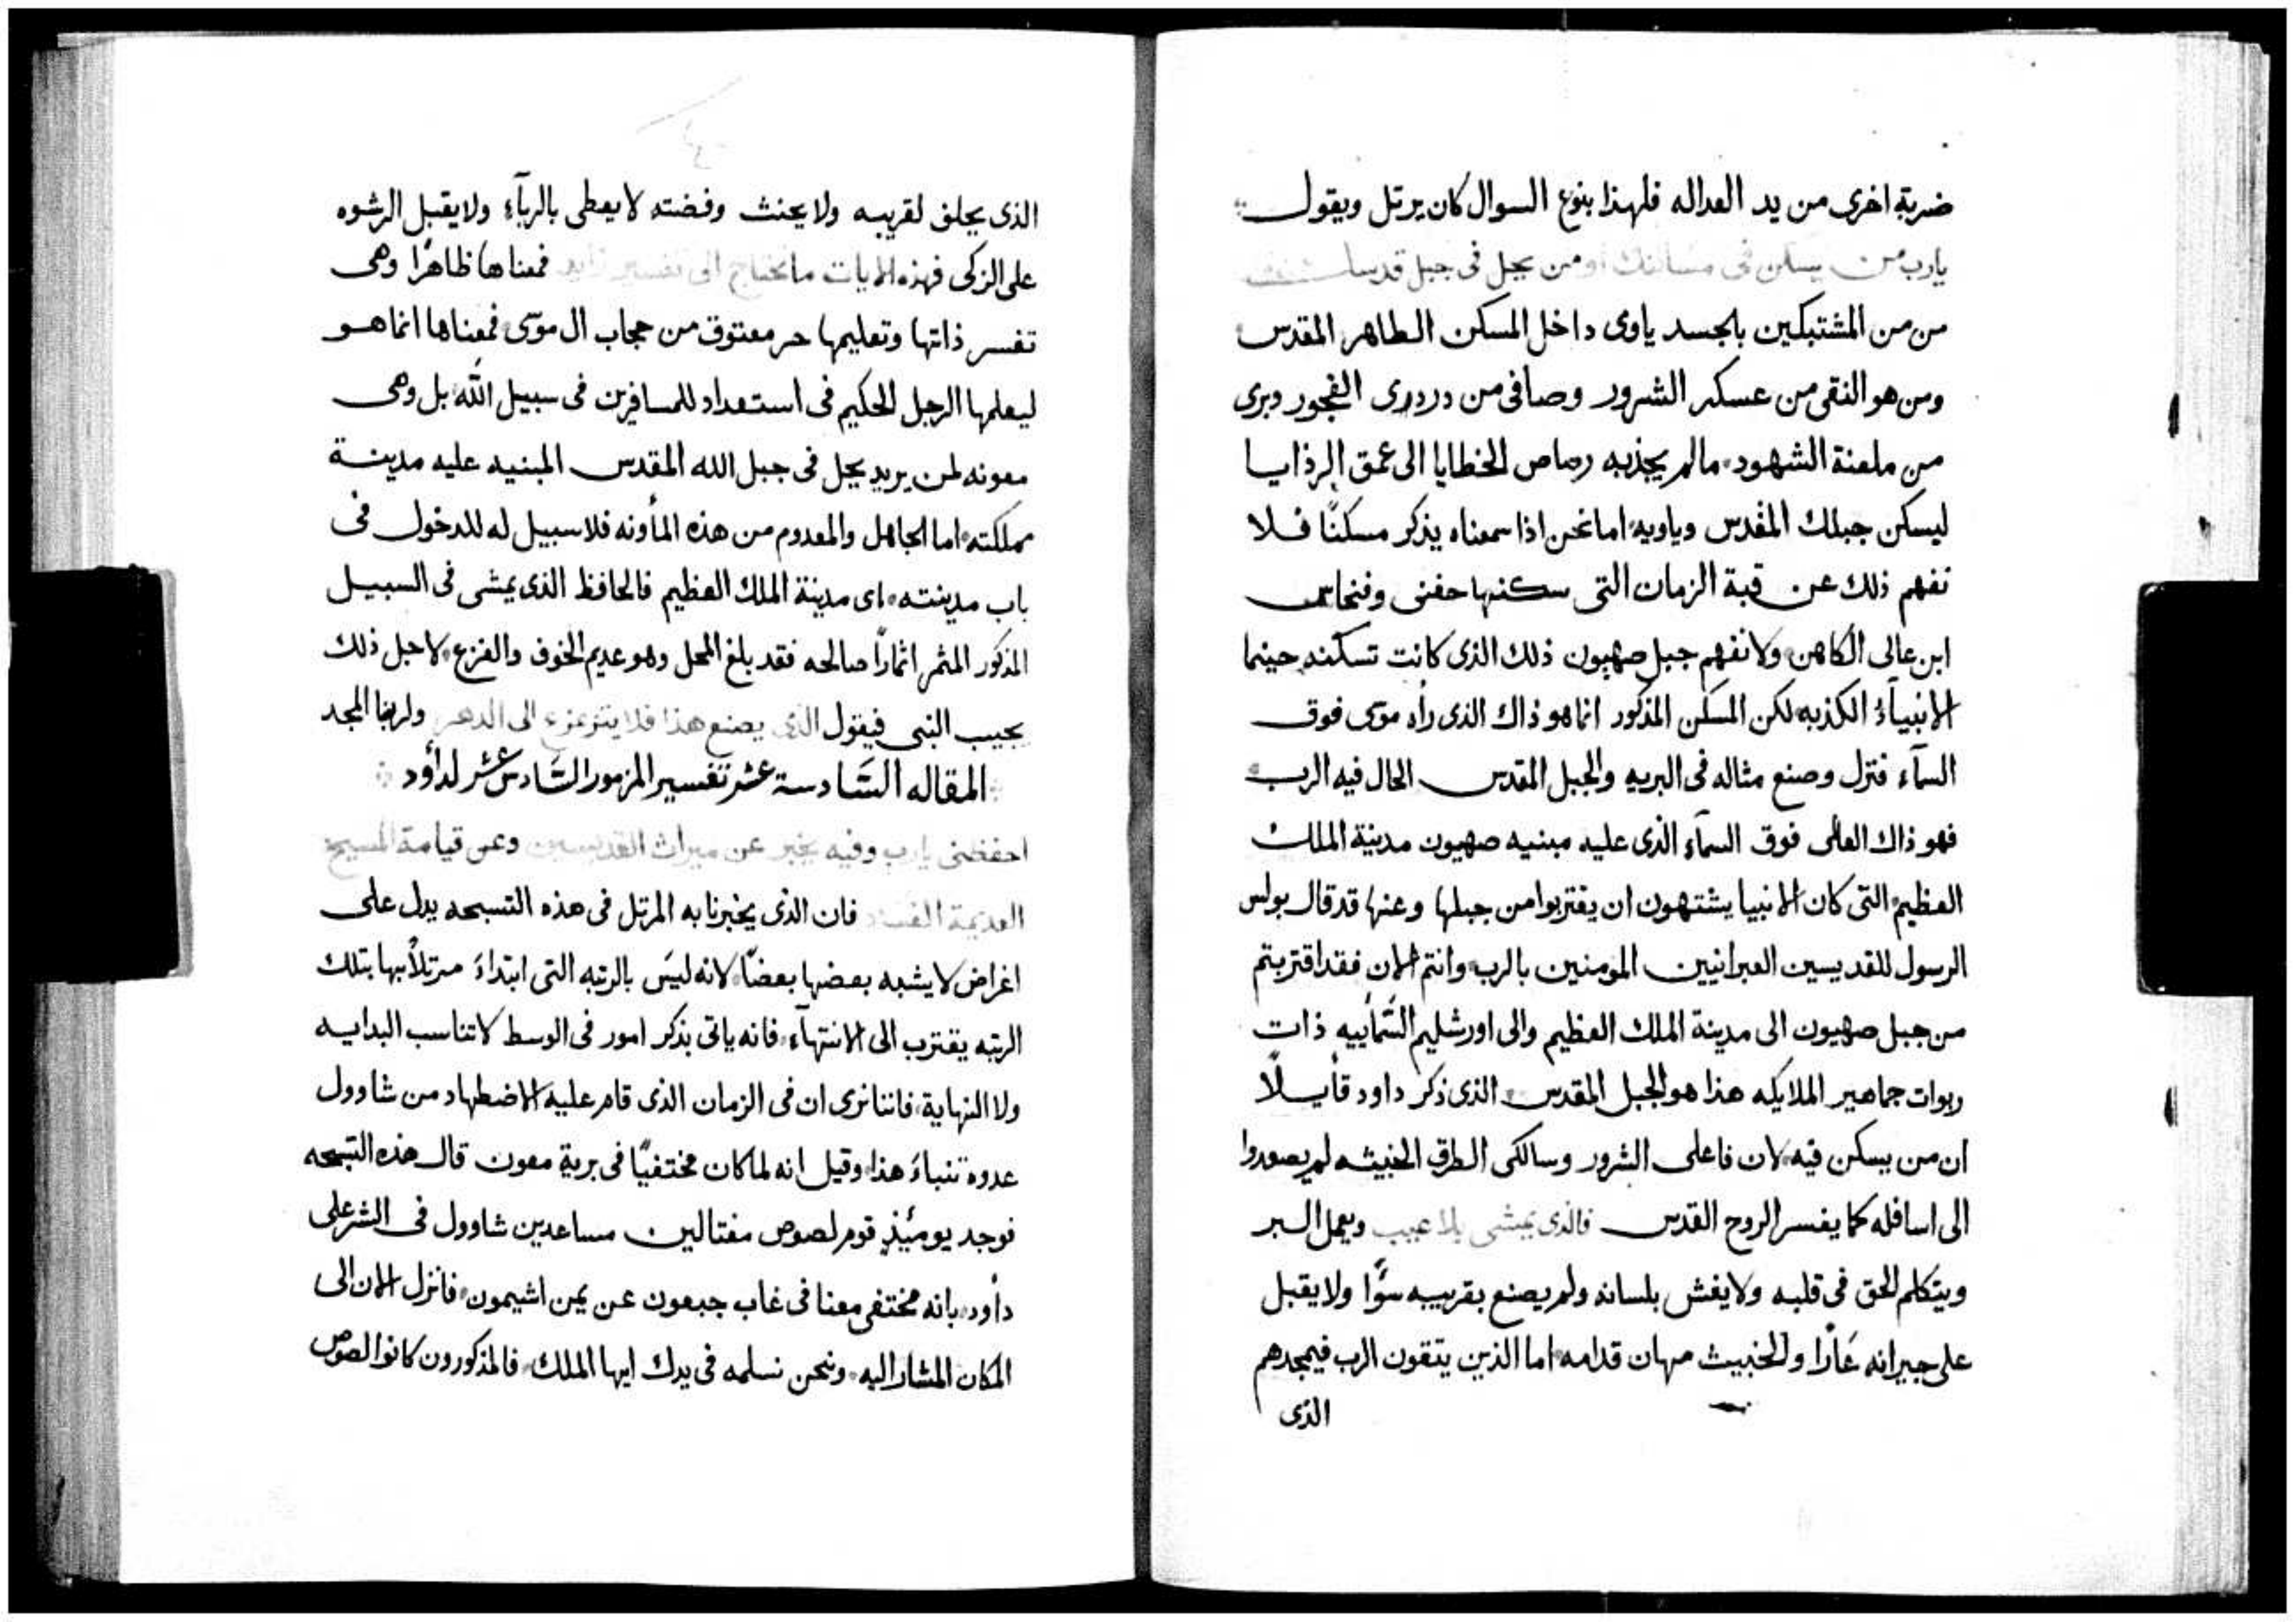 ضربة اخرى من يد العداله فلهذا بنوع السوال كان يرتل ويقول
يارب من يسكن فى مسكنك او من يحل فى جبل قدسك
من من المشتبكين بالجسد ياوى داخل المسكن الطاهر المقدس
ومن هو النقى من عسكر الشرور وصافى من دردرى الفجور وبرى
من ملعنة الشهود ما لم يجذبه رصاص الخطايا الى عمق الرذايا
ليسكن جبلك المقدس وياويه اما نحن اذا سمعناه يذكر مسكنًا فلا
نفهم ذلك عن قبة الزمان التى سكنها حفنى وفنحاس
ابن عالى الكاهن ولا نفهم جبل صهيون ذلك الذى كانت تسكنه حينما
الانبيآء الكذبه لكن المسكن المذكور انما هو ذاك الذى راه موسى فوق
السمآء فنزل وصنع مثاله فى البريه والجبل المقدس الحال فيه الرب
فهو ذاك العالى فوق السمآء الذى عليه مبنيه صهيون مدينة الملك
العظيم التى كان الانبيا يشتهون ان يقتربوا من جبلها وعنها قد قال بولس
الرسول للقديسين العبرانيين المومنين بالرب وانتم الان فقد اقتربتم
من جبل صهيون الى مدينة الملك العظيم والى اورشليم السَّمأييه ذات
ربوات جماهير الملايكه هذا هو الجبل المقدس الذى ذكر داود قأيلًا
ان من يسكن فيه لان فاعلى الشرور وسالكى الطرق الخبيثه لم يصعدوا
الى اسافله كما يفسر الروح القدس فالذى يمشى بلا عيب ويعمل البر
ويتكلم الحق فى قلبه ولا يغش بلسانه ولم يصنع بقريبه سوًا ولا يقبل
على جيرانه عَارًا والخبيث مهان قدامه اما الذين يتقون الرب فيمجدهم
الذى
الذى يحلف لقريبه ولا يحنث وفضته لا يعطى بالربآء ولا يقبل الرشوه
على الزكى فهذه الايات ما تحتاج الى تفسير زايد فمعناها ظاهرًا وهى
تفسر ذاتها وتعليمها حر معتوق من حجاب ال موسى فمعناها انما هو
ليعلمها الرجل الحكيم فى استعداد للمسافرين فى سبيل الله بل وهى
معونه لمن يريد يحل فى جبل الله المقدس المبنيه عليه مدينة
مملكته اما الجاهل والمعدوم من هذه المأونه فلا سبيل له للدخول فى
باب مدينته اى مدينة الملك العظيم فالحافظ الذى يمشى فى السبيل
المذكور المثمر اثمارًا صالحه فقد بلغ المحل وهو عديم الخوف والفزع لاجل ذلك
يجيب النبى فيقول الذى يصنع هذا فلا يتزعزع الى الدهر ولربنا المجد
المقاله السَّادسة عشر تفسير المزمور السَّادس عشر لدأود
احفظنى يارب وفيه يخبر عن ميراث القديسين وعن قيامة المسيح
العديمة الفساد فان الذى يخبرنا به المرتل فى هذه التسبحه يدل على
اغراض لا يشبه بعضها بعضًا لانه ليسَ بالرتبه التى ابتداءَ مرتلًا بها بتلك
الرتبه يقترب الى الانتهآء فانه ياتى بذكر امور فى الوسط لا تناسب البدايه
ولا النهاية فاننا نرى ان فى الزمان الذى قام عليه الاضطهاد من شاوول
عدوه تنباءَ هذا وقيل انه لما كان مختفيًا فى برية معون قال هذه التسبحه
فوجد يومئيذٍ قوم لصوص مغتالين مساعدين شاوول فى الشر على
دأود بانه مختفى معنا فى غاب جبعون عن يمن اشيمون فانزل الان الى
المكان المشار اليه ونحن نسلمه فى يدك ايها الملك فالمذكورون كانوا لصوص